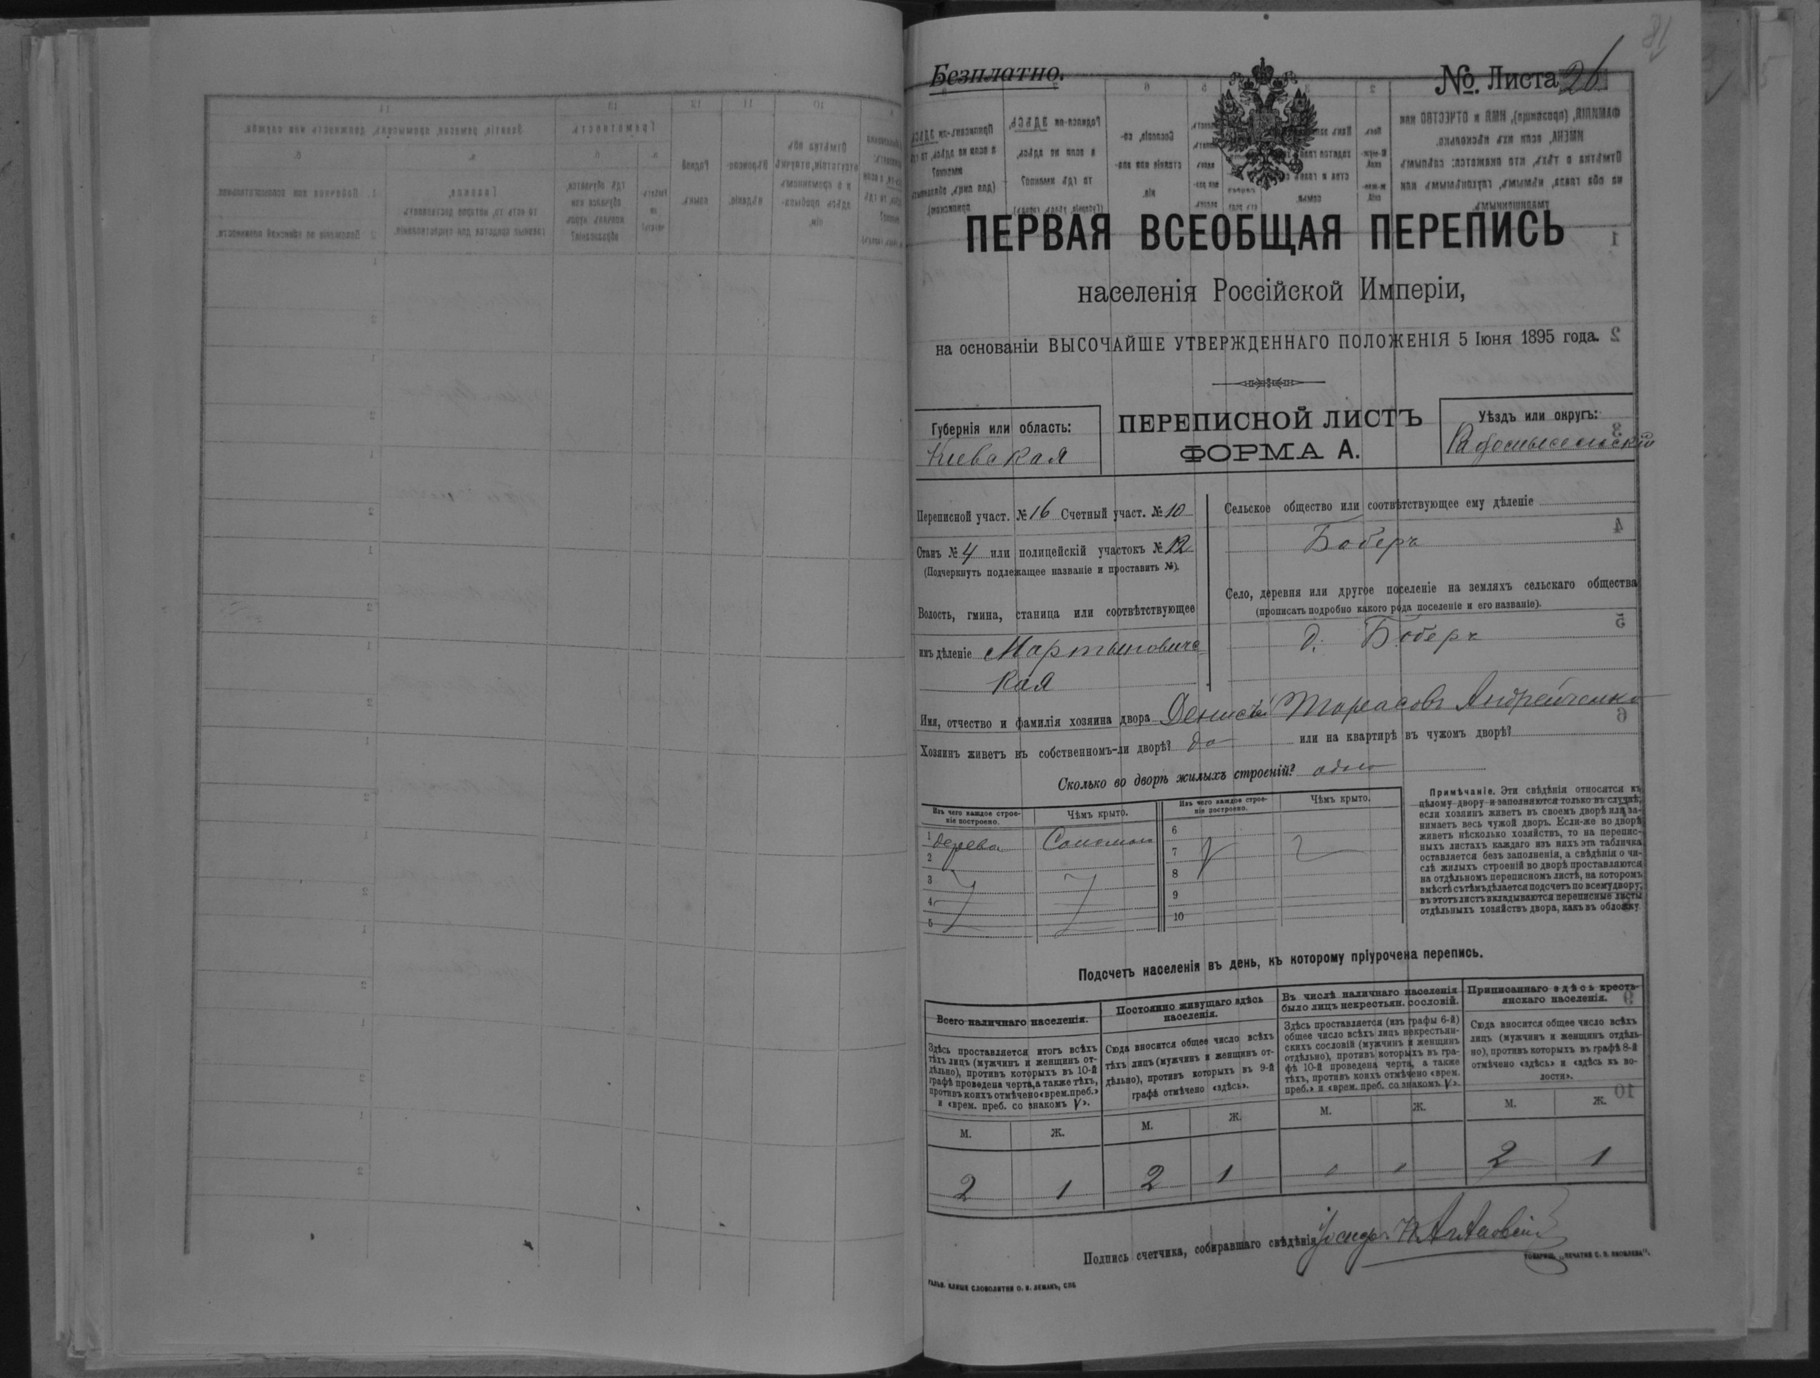 81
Безплатно.
№. Листа 26
ПЕРВАЯ ВСЕОБЩАЯ ПЕРЕПИСЬ
населенія Россійской Имперіи,
на основаніи ВЫСОЧАЙШЕ УТВЕРЖДЕННАГО ПОЛОЖЕНІЯ 5 Іюня 1895 года.
Губернія или область:
Киевская
ПЕРЕПИСНОЙ ЛИСТЪ
ФОРМА А.
Уѣздъ или округъ:
Радомысельскій
Переписной участ. № 16 Счетный участ. № 10
Станъ № 4 или полицейскій участокъ № 12
(Подчеркнуть подлежащее названіе и проставить №).
Волость, гмина, станица или соотвѣтствующее
имъ дѣленіе Мартыновичс
кая
Сельское общество или соотвѣтствующее ему дѣленіе
Боберъ
Село, деревня или другое поселеніе на земляхъ сельскаго общества
(прописать подробно какого рода поселеніе и его названіе).
д. Боберъ
Имя, отчество и фамилія хозяина двора Денисъ Тарасовъ Андрейченко
Хозяинъ живетъ въ собственномъ-ли дворѣ? да или на квартирѣ въ чужомъ дворѣ?
Сколько во дворѣ жилыхъ строеній? одно
Изъ чего каждое строе-
ніе построено.
Чѣмъ крыто.
Изъ чего каждое строе-
ніе построено.
Чѣмъ крыто.
1 дерева Соломою
2
3
4
5
6
7
8
9
10
Примѣчаніе. Эти свѣдѣнія относятся къ
цѣлому двору и заполняются только въ случаѣ,
если хозяинъ живетъ въ своемъ дворѣ или за-
нимаетъ весь чужой дворъ. Если-же во дворѣ
живетъ нѣсколько хозяйствъ, то на перепис-
ныхъ листахъ каждаго изъ нихъ эта табличка
оставляется безъ заполненія, а свѣдѣнія о чи-
слѣ жилыхъ строеній во дворѣ проставляются
на отдѣльномъ переписномъ листѣ, на которомъ
вмѣстѣ съ тѣмъ дѣлается подсчетъ по всему двору;
въ этотъ листъ вкладываются переписные листы
отдѣльныхъ хозяйствъ двора, какъ въ обложку
Подсчетъ населенія въ день, къ которому пріурочена перепись.
Всего наличнаго населенія.
Здѣсь проставляется итогъ всѣхъ
тѣхъ лицъ (мужчинъ и женщинъ от-
дѣльно), противъ которыхъ въ 10-й
графѣ проведена черта, а также тѣхъ,
противъ коихъ отмѣчено «врем. преб.»
и «врем. преб. со знакомъ V».
М. Ж.
2 1
Постоянно живущаго здѣсь
населенія.
Сюда вносится общее число всѣхъ
тѣхъ лицъ (мужчинъ и женщинъ от-
дѣльно), противъ которыхъ въ 9-й
графѣ отмѣчено «здѣсь».
М. Ж.
2 1
Въ числѣ наличнаго населенія
было лицъ некрестьян. сословій.
Здѣсь проставляется (изъ графы 6-й)
общее число всѣхъ лицъ некрестьян-
скихъ сословій (мужчинъ и женщинъ
отдѣльно), противъ которыхъ въ гра-
фѣ 10-й проведена черта, а также
тѣхъ, противъ коихъ отмѣчено «врем.
преб.» и «врем. преб. со знакомъ V».
М. Ж.
Приписаннаго здѣсь кресть-
янскаго населенія.
Сюда вносится общее число всѣхъ
лицъ (мужчинъ и женщинъ отдѣль-
но), противъ которыхъ въ графѣ 8-й
отмѣчено «здѣсь» и «здѣсь въ во-
лости».
М. Ж.
2 1
Подпись счетчика, собиравшаго свѣдѣнія
ГАЛЬВ. КЛИШЕ СЛОВОЛИТНИ О. И. ЛЕМАНЪ, СПБ